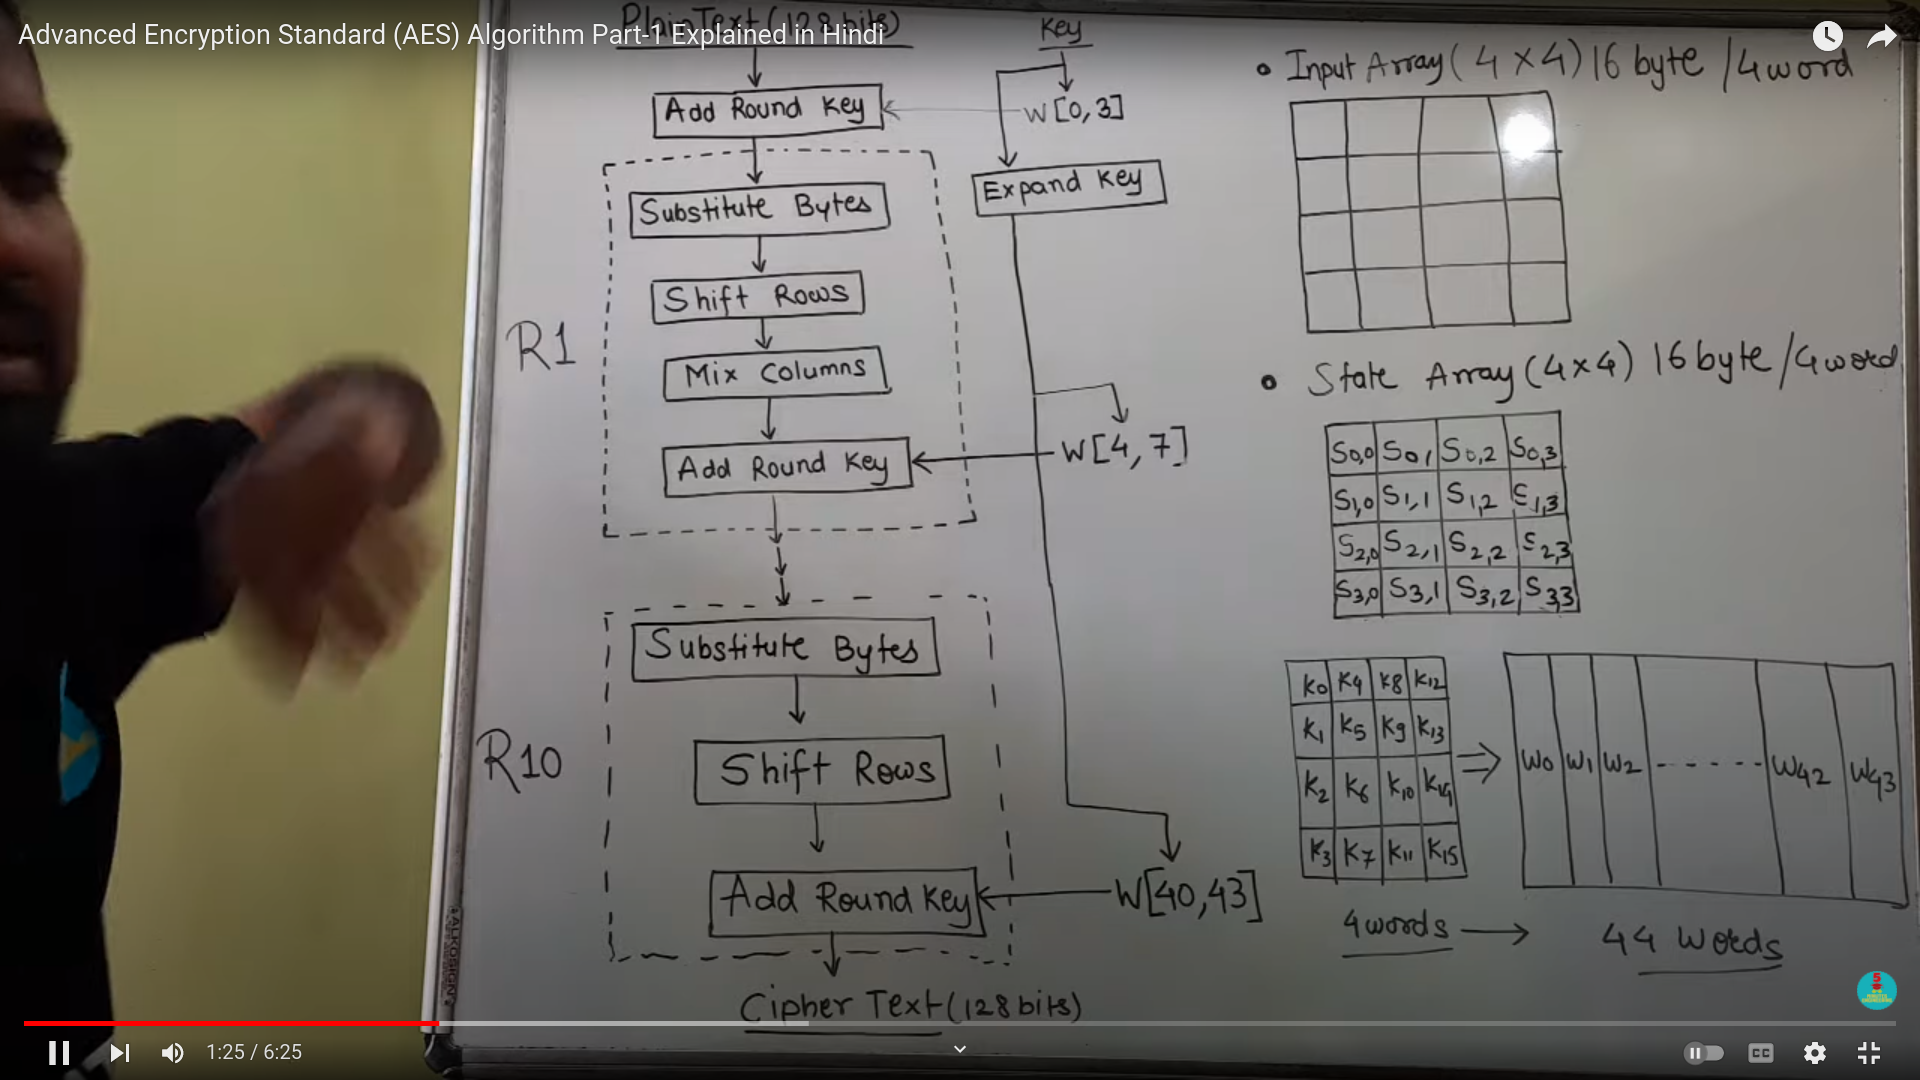 Advanced Encryption Standard (AES) Algorithm Part-1 Explained in Hindi
Plain Text (128 bits)
Key
Add Round Key
W[0,3]
Expand Key
R1
Substitute Bytes
Shift Rows
Mix Columns
Add Round Key
W[4,7]
R10
Substitute Bytes
Shift Rows
Add Round Key
W[40,43]
Cipher Text (128 bits)
• Input Array (4×4) 16 byte / 4 word
• State Array (4×4) 16 byte / 4 word
S0,0 S0,1 S0,2 S0,3
S1,0 S1,1 S1,2 S1,3
S2,0 S2,1 S2,2 S2,3
S3,0 S3,1 S3,2 S3,3
K0 K4 K8 K12
K1 K5 K9 K13
K2 K6 K10 K14
K3 K7 K11 K15
⇒
W0 W1 W2 ------ W42 W43
4 words → 44 Words
1:25 / 6:25
CC